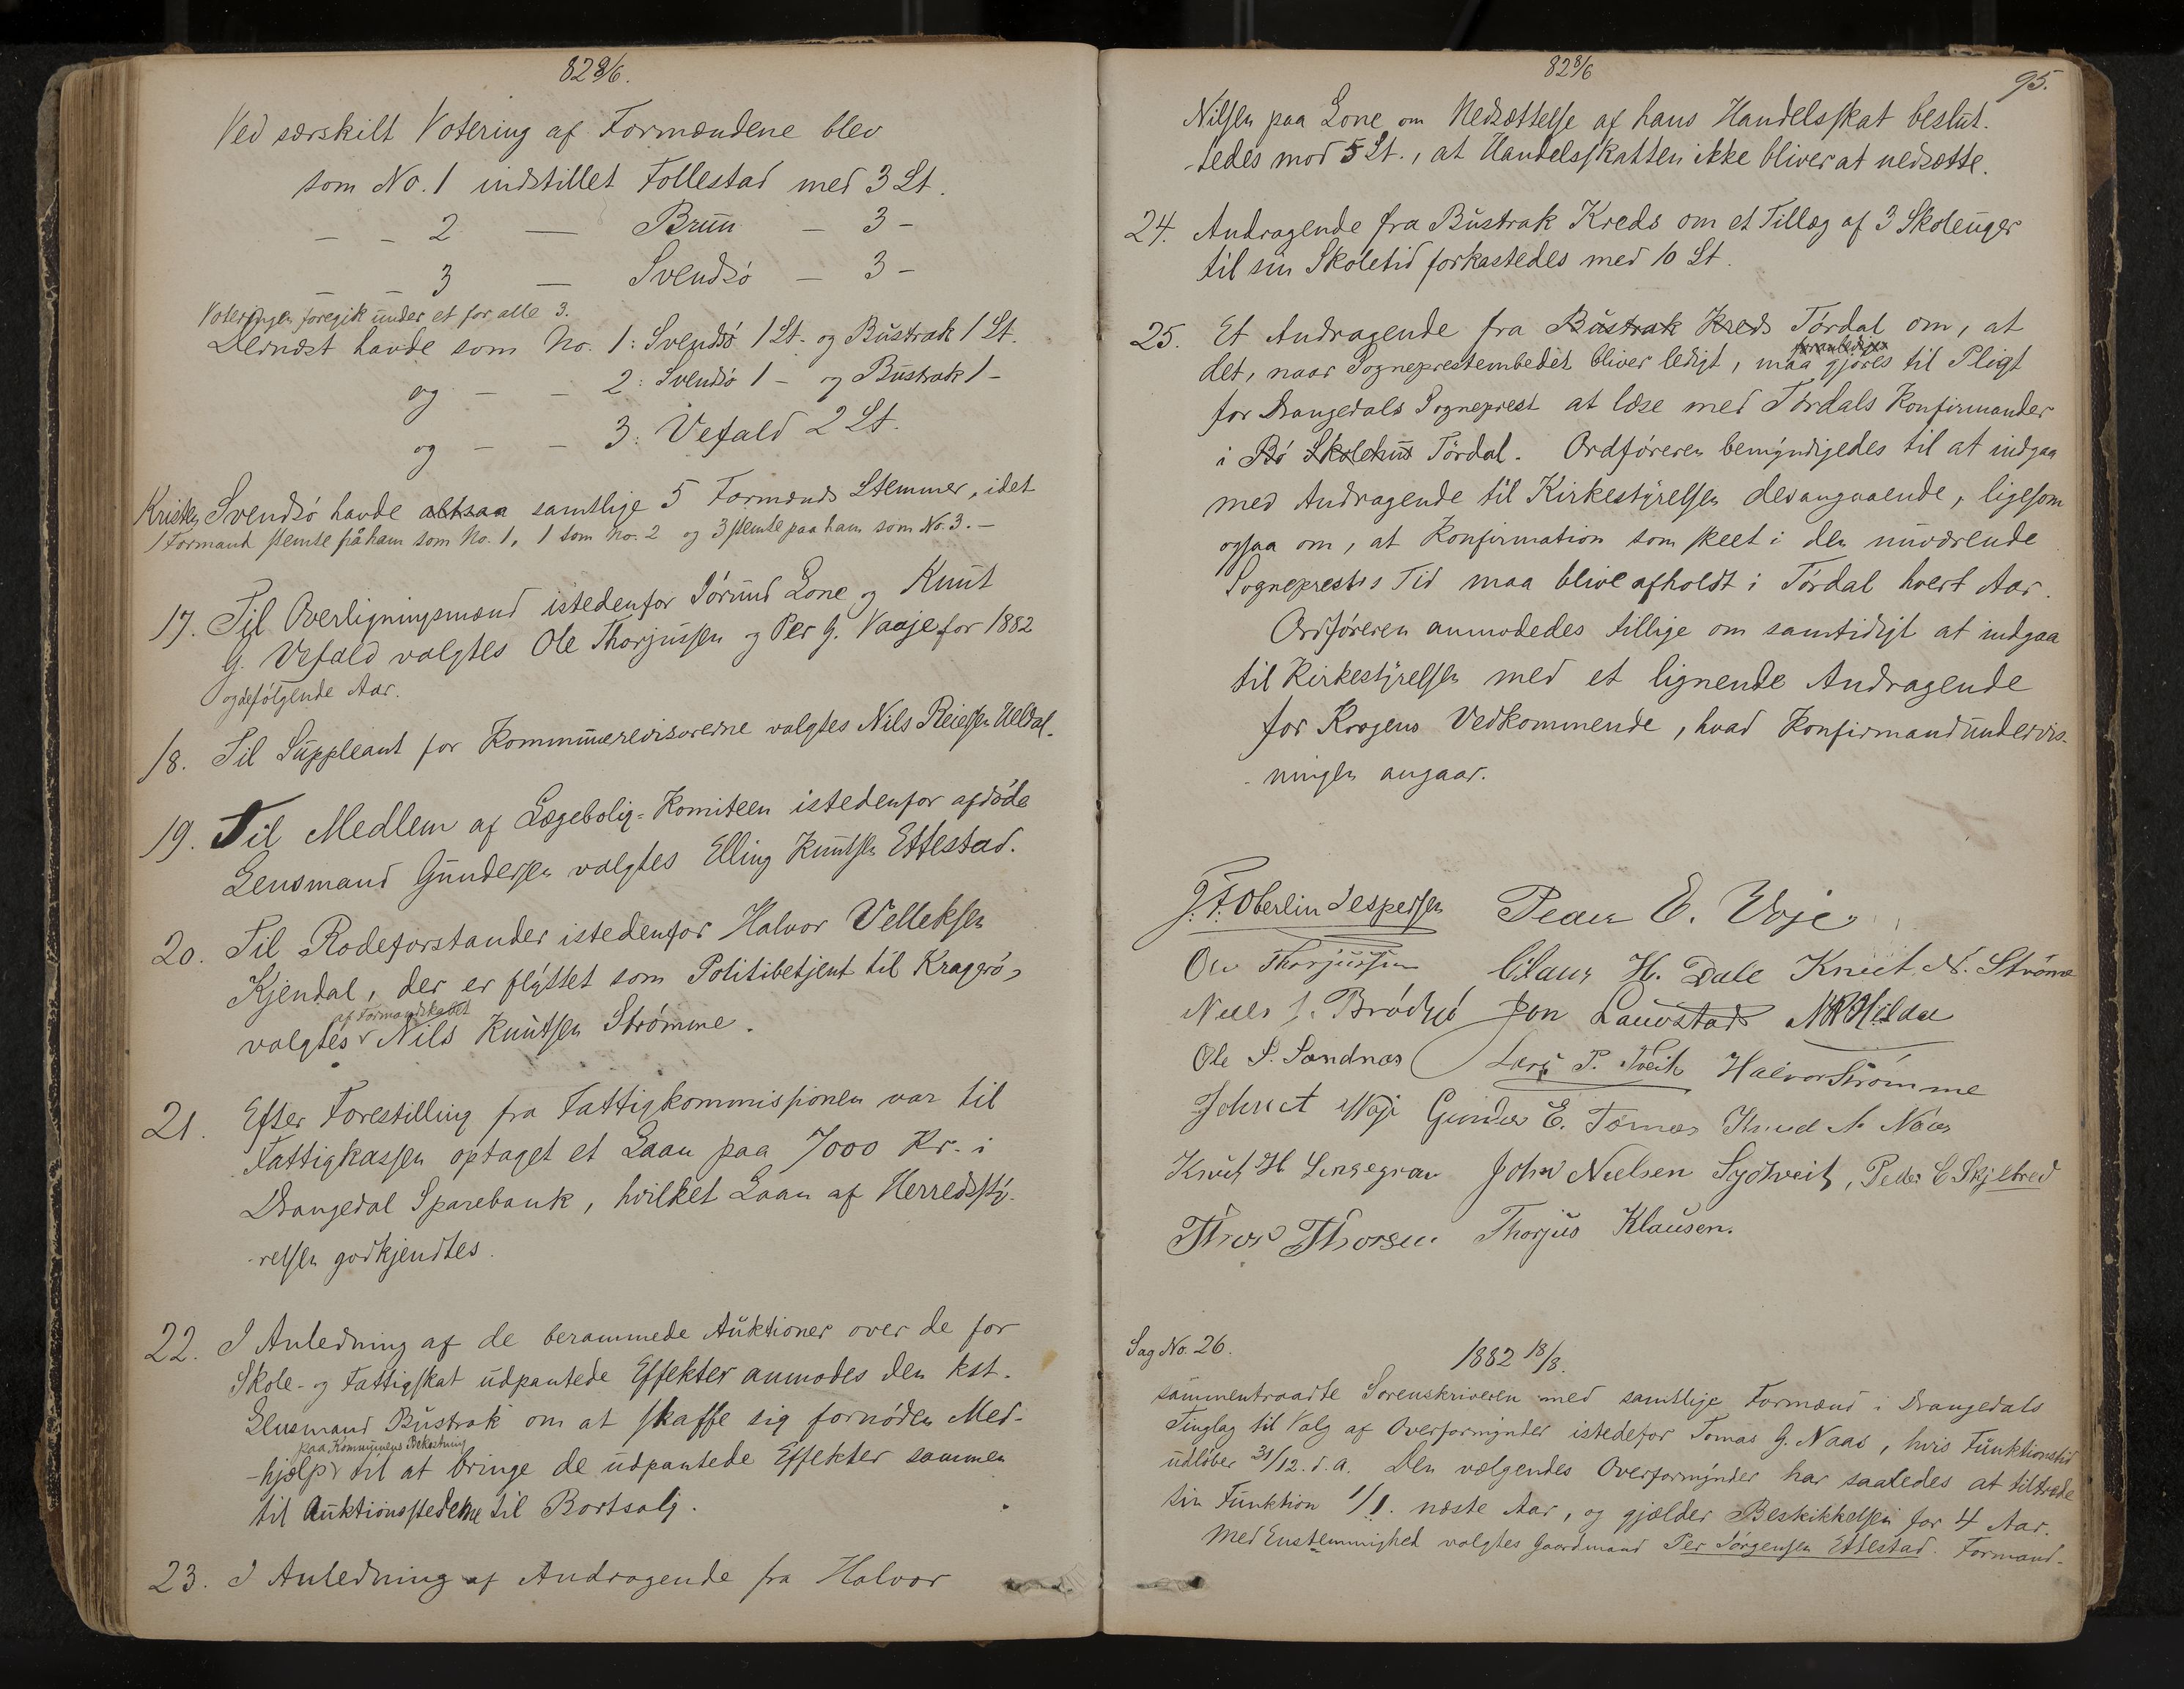 82 8/6.
Ved særskilt Votering af Formændene blev
som No. 1 indstillet Tollestad med 3 St.
— – 2 — Brun – 3 –
— — 3 — Svendsö — 3 –
Voteringen foregik under et for alle 3.
Dernæst havde som No. 1: Svendsö 1 St. og Bustrak 1 St.
og – – 2: Svendsö 1 – og Bustrak 1 –
og – – 3: Vefald 2 St.
Kristen Svendsö havde altsaa samtlige 5 Formænds Stemmer, idet
1 Formand stemte på ham som No. 1, 1 som No. 2 og 3 stemte paa ham som No. 3. –
17. Til Overligningsmænd istedenfor Jörund Lone og Knut
G. Vefald valgtes Ole Thorjussen og Per G. Vaaje for 1882
og defölgende Aar.
18. Til Suppleant for Kommunerevisorerne valgtes Nils Reiersen Heldal.
19. Til Medlem af Lægebolig-Komiteen istedenfor afdöde
Lensmand Gundersen valgtes Elling Knutsen Ettestad.
20. Til Rodeforstander istedenfor Halvor Velleksen
Kjendal, der er flyttet som Politibetjent til Kragerö,
af Formandskabet
valgtes Nils Knutsen Strömme.
21. Efter Forestilling fra Fattigkommissionen var til
Fattigkassen optaget et Laan paa 7000 Kr. i
Drangedal Sparebank, hvilket Laan af Herredssty-
-relsen godkjendtes.
22. I Anledning af de berammede Auktioner over de for
Skole- og Fattigskat udpantede Effekter anmodes den kst.
Lensmand Bustrak om at skaffe sig fornöden Med-
paa Kommunens Bekostning
-hjælp til at bringe de udpantede Effekter sammen
til Auktionsstederne til Bortsalg.
23. I Anledning af Andragende fra Halvor
82 8/6
95.
Nilsen paa Lone om Nedsættelse af hans Handelsskat beslut-
-tedes mod 5 St., at Handelsskatten ikke bliver at nedsætte.
24. Andragende fra Bustrak Kreds om et Tillæg af 3 Skoleuger
til sin Skoletid forkastedes med 10 St.
25. Et Andragende fra Bustrak Kreds Tördal om, at
det, naar Sogneprestembedet bliver ledigt, maa gjöres til Pligt
for Drangedals Sogneprest at læse med Tördals Konfirmander
i Bö Skolehus Tördal. Ordföreren bemyndigedes til at indgaa
med Andragende til Kirkestyrelsen desangaaende, ligesom
ogsaa om, at Konfirmation som skeet i den nuværende
Sogneprests Tid maa blive afholdt i Tördal hvert Aar.
Ordföreren anmodedes tillige om samtidigt at indgaa
til Kirkestyrelsen med et lignende Andragende
for Krogens Vedkommende, hvad Konfirmandundervis-
-ningen angaar.
J. F. Oberlin Jespersen Peder E. Voje
Ole Thorjussen Claus H. Dale Knut N. Strömme
Niels J. Brödsjö Jon Lauvstad N R Heldal
Ole S. Sandnæs Lars P. Tveit Halvor Strömme
Gunder E. Tornæs Knud N. Næs
Knut H. John Nielsen Sydtveit, Peder C Skjelbred
Thor Thorsen Thorjus Klausen.
Sag No. 26.
1882 18/8.
sammentraadte Sorenskriveren med samtlige Formænd i Drangedals
Tinglag til Valg af Overformynder istedefor Tomas G. Naas, hvis Funktionstid
udlöber 31/12. d. a. Den vælgendes Overformynder har saaledes at tiltræde
sin Funktion 1/1. næste Aar, og gjælder Beskikkelsen for 4 Aar.
Med Enstemmighed valgtes Gaardmand Per Jörgensen Ettestad. Formand-